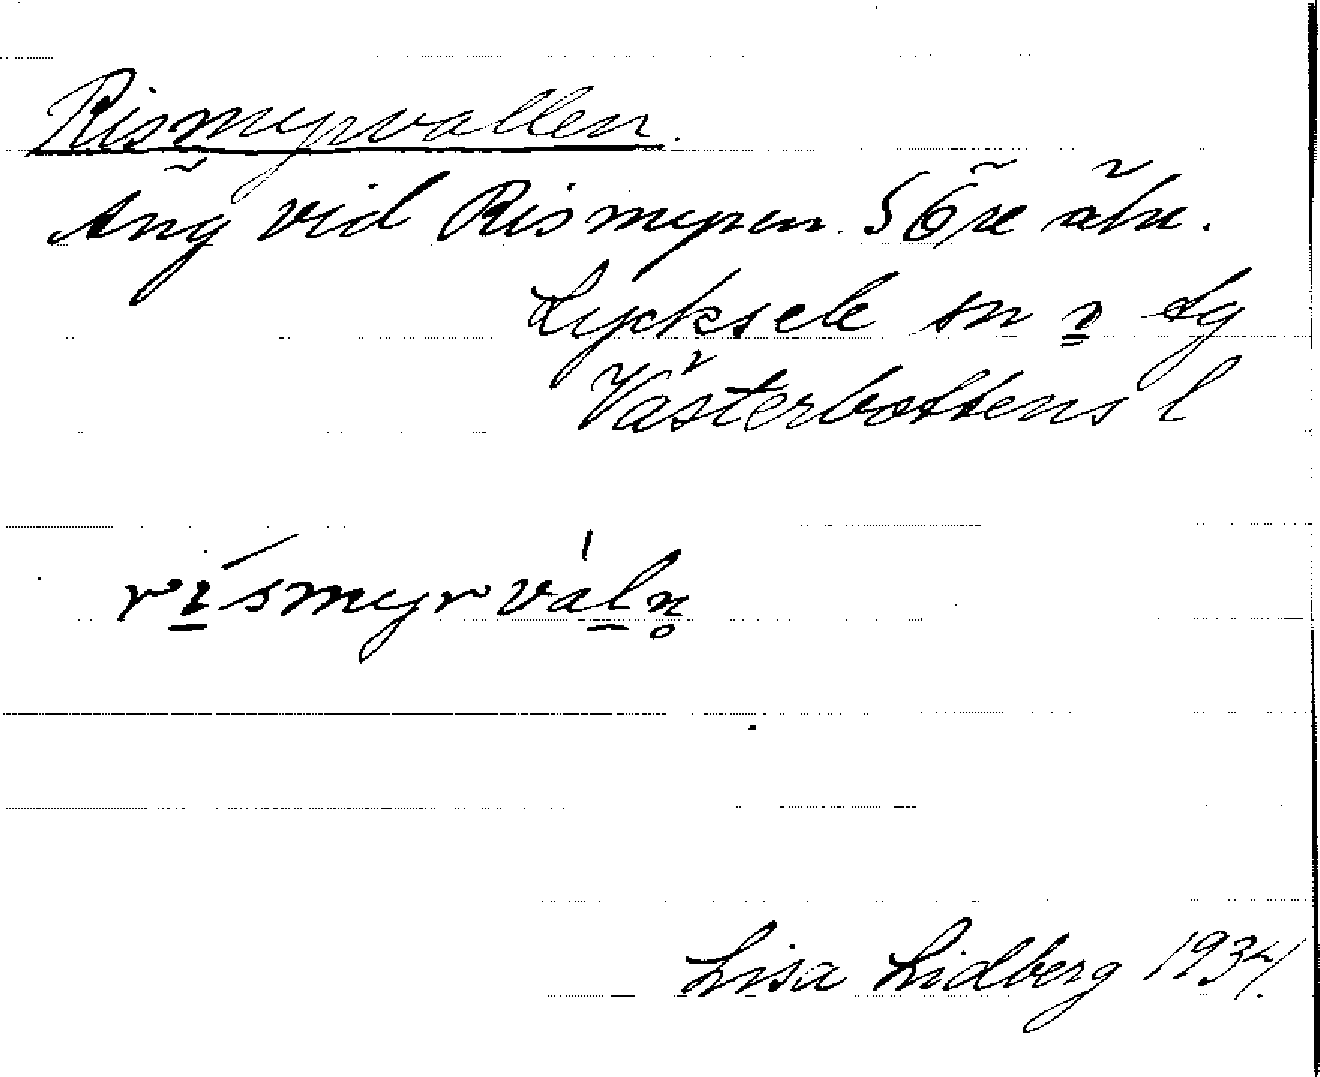 Rismyrvallen.
Äng vid Rismyren. S Öre älv.
Lycksele sn o Lg
Västerbottens l
rismyrvaln
Lisa Lidberg 1934.